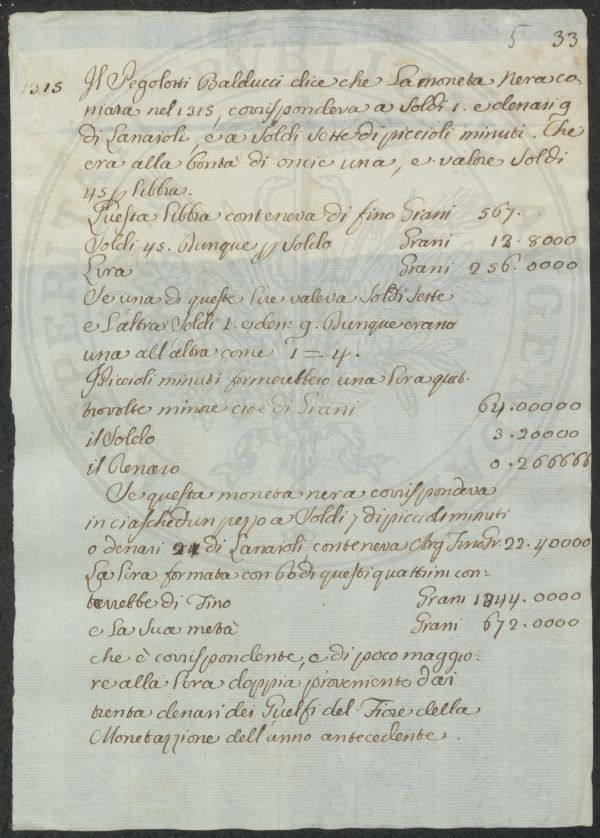 5 33
1315 Il Pegolotti Balducci dice che La moneta Nera co=
niata nel 1315, corrispondeva a Soldi 1. e denari 9
di Lanaioli, e a Soldi Sette di piccioli minuti. Che
era alla bontà di oncie una, e valore Soldi
45 p libbra.
Questa libbra conteneva di fino Grani 567.
Soldi 45. Dunque p Soldo Grani 12.8000
Lira Grani 256.0000
Se una di queste lire valeva Soldi Sette
e L'altra Soldi 1. e den: 9. Dunque erano
una all'altra come 1 = 4.
I Piccioli minuti formerebbero una lira quat=
trovolte minore cioè di Grani 64.00000
il Soldo 3.20000
il Denaro 0.266666
Se questa moneta nera corrispondeva
in ciaschedun pezzo a Soldi 7 di piccioli minuti
o denari 21 di Lanaioli, conteneva Arg. Fino Gr. 22.40000
La lira formata con 60 di questi quattrini con=
terrebbe di Fino Grani 1344.0000
e La Sua metà Grani 672.0000
che è corrispondente, e di poco maggio=
re alla lira doppia proveniente dai
trenta denari dei Guelfi del Fiore della
Monetazzione dell'anno antecedente.